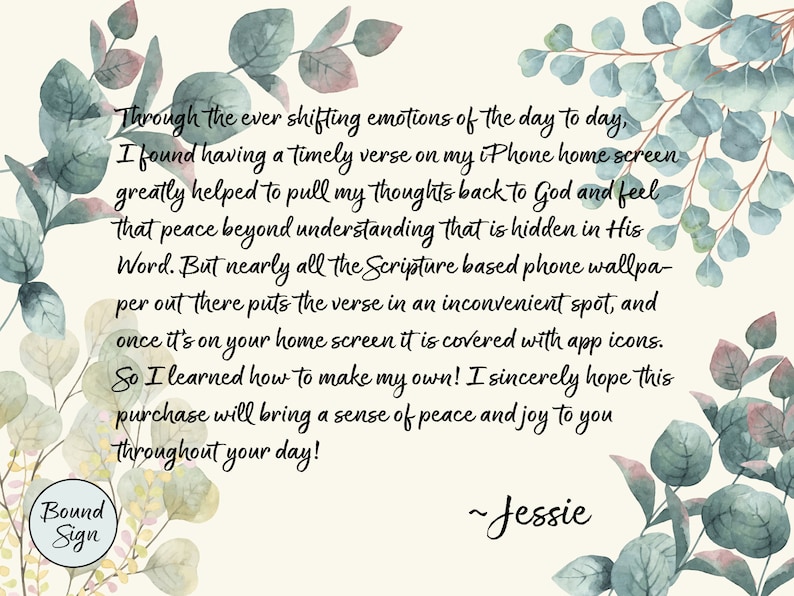 Through the ever shifting emotions of the day to day,
I found having a timely verse on my iPhone home screen
greatly helped to pull my thoughts back to God and feel
that peace beyond understanding that is hidden in His
Word. But nearly all the Scripture based phone wallpa-
per out there puts the verse in an inconvenient spot, and
once it's on your home screen it is covered with app icons.
So I learned how to make my own! I sincerely hope this
purchase will bring a sense of peace and joy to you
throughout your day!
~Jessie
Bound
Sign